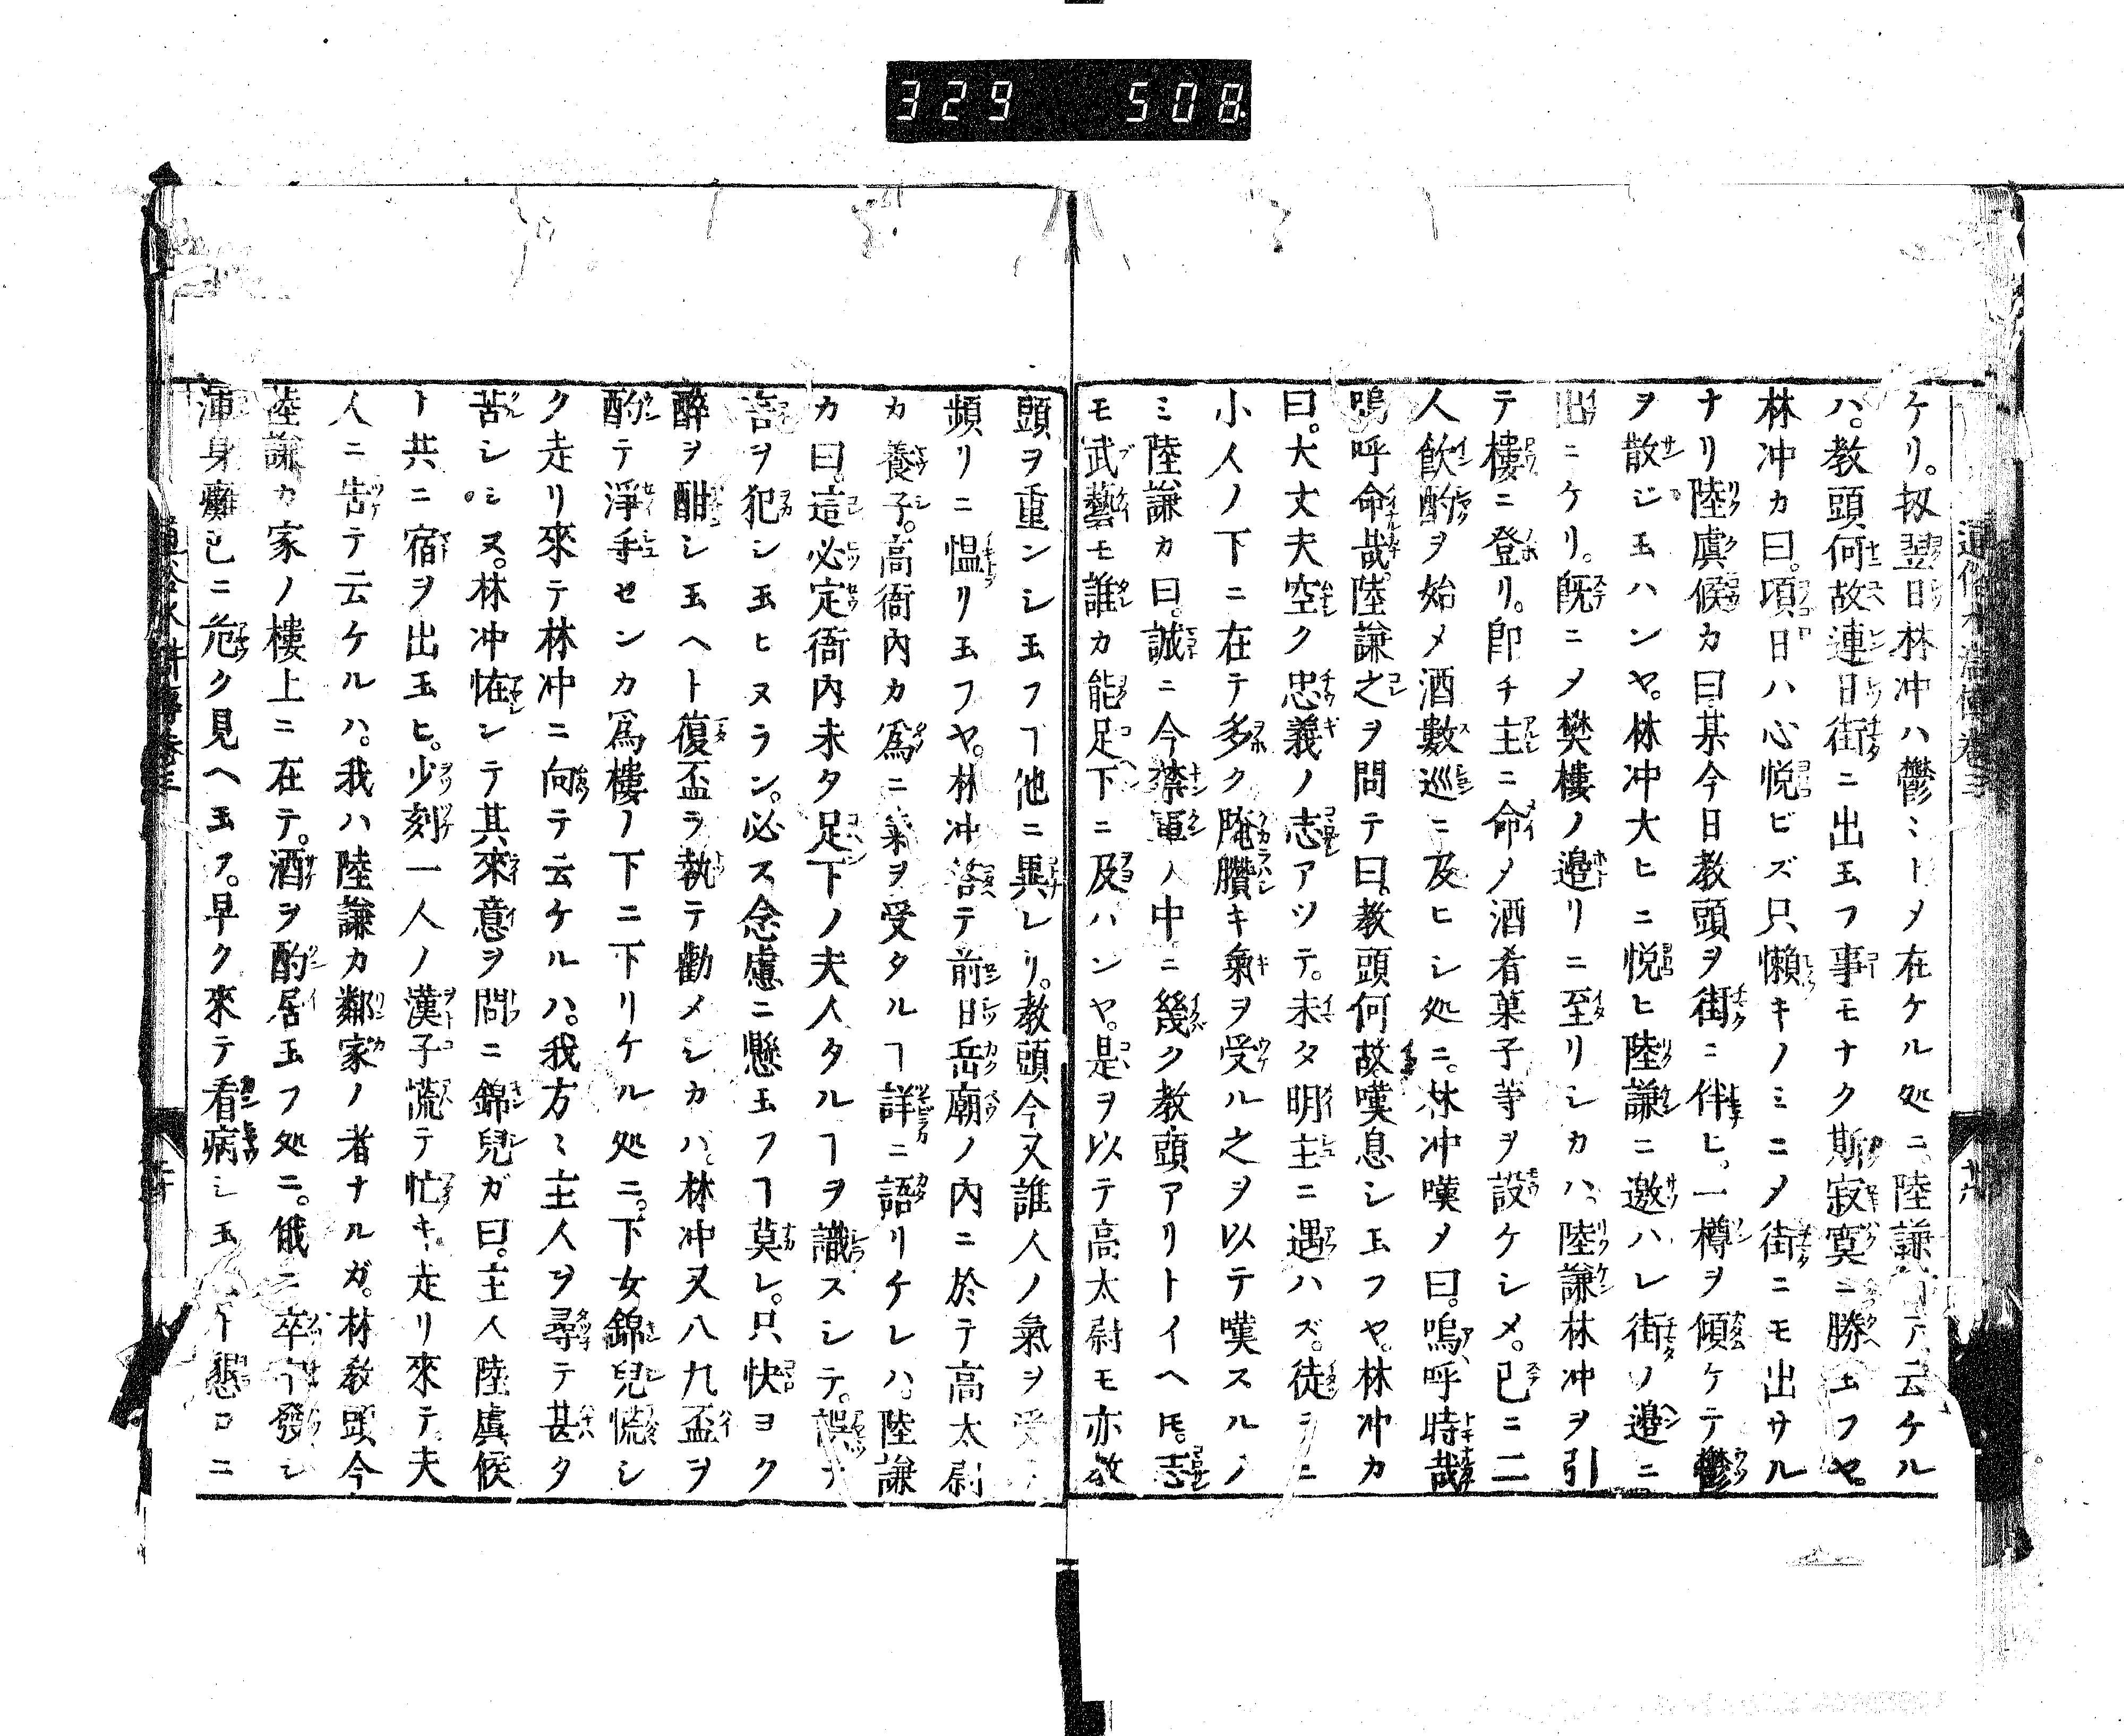 329 508
通俗水滸傳卷三
ケリ。扨翌日林冲ハ鬱ミトメ在ケル処ニ。陸謙云ケル
ハ。教頭何故連日街ニ出玉フ事モナク斯寂寞ニ勝玉フヤ。
林冲カ曰。項日ハ心悦ビズ只懶キノミニメ街ニモ出サル
ナリ陸虞候カ曰某今日教頭ヲ街ニ伴ヒ。一樽ヲ傾ケテ鬱
ヲ散ジ玉ハンヤ。林冲大ヒニ悦ヒ陸謙ニ邀ハレ街ノ邉ニ
出ニケリ。既ニメ樊樓ノ邉リニ至リシカハ。陸謙林冲ヲ引
テ樓ニ登リ。即チ主ニ命メ酒肴菓子等ヲ設ケシメ。已ニ二
人飲酌ヲ始メ酒數巡ニ及ヒシ処ニ。林冲嘆メ曰。嗚呼時哉
嗚呼命哉。陸謙之ヲ問テ曰。教頭何故嘆息シ玉フヤ。林冲カ
曰。大丈夫空ク忠義ノ志アツテ。未タ明主ニ遇ハズ。徒ラニ
小人ノ下ニ在テ多ク腌臢キ氣ヲ受ル之ヲ以テ嘆スルノ
ミ陸謙カ曰。誠ニ今禁軍ノ中ニ幾ク教頭アリトイヘ𪜈。志
モ武藝モ誰カ能足下ニ及ハンヤ。是ヲ以テ高太尉モ亦教
頭ヲ重ンシ玉フヿ他ニ異レリ。教頭今又誰人ノ氣ヲ受
頻リニ慍リ玉フヤ。林冲答テ前日岳廟ノ内ニ於テ高太尉
カ養子。高衙内カ爲ニ氣ヲ受タルヿ詳ニ語リケレハ。陸謙
カ曰。這必定衙内未タ足下ノ夫人タルヿヲ識スシテ。誤テ
言ヲ犯シ玉ヒヌラン。必ス念慮ニ懸玉フヿ莫レ。只快ヨク
醉ヲ酣シ玉ヘト復盃ヲ執テ勸メシカハ。林冲又八九盃ヲ
酌テ淨手センカ爲樓ノ下ニ下リケル処ニ。下女錦兒慌シ
ク走リ來テ林冲ニ向テ云ケルハ。我方ミ主人ヲ尋テ甚タ
苦シミヌ。林冲恠ンテ其來意ヲ問ニ錦兒ガ曰。主人陸虞候
ト共ニ宿ヲ出玉ヒ。少刻一人ノ漢子慌テ忙キ走リ來テ。夫
人ニ告テ云ケルハ。我ハ陸謙カ鄰家ノ者ナルガ。林教頭今
陸謙カ家ノ樓上ニ在テ。酒ヲ酌居玉フ処ニ。俄ニ卒ヿ發シ
渾身癱已ニ危ク見ヘ玉フ。早ク來テ看病シ玉ト懇ロニ